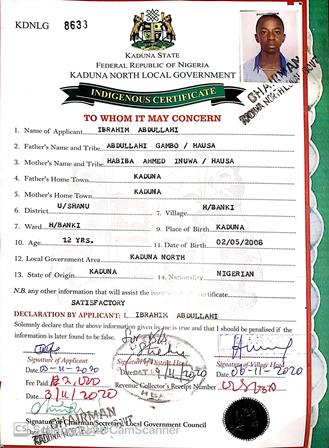 KDNLG 8633
KADUNA STATE
FEDERAL REPUBLIC OF NIGERIA
KADUNA NORTH LOCAL GOVERNMENT
INDIGENOUS CERTIFICATE
CHAIRMAN
KADUNA NORTH LOCAL GOVT
TO WHOM IT MAY CONCERN
1. Name of Applicant IBRAHIM ABDULLAHI
2. Father's Name and Tribe ABDULLAHI GAMBO / HAUSA
3. Mother's Name and Tribe HABIBA AHMED INUWA / HAUSA
4. Father's Home Town KADUNA
5. Mother's Home Town KADUNA
6. District U/SHANU 7. Village H/BANKI
7. Ward H/BANKI 9. Place of Birth KADUNA
10. Age 12 YRS. 11. Date of Birth 02/05/2006
12. Local Government Area KADUNA NORTH
13. State of Origin KADUNA 14. Nationality NIGERIAN
N.B. any other information that will assist the certificate.
SATISFACTORY
DECLARATION BY APPLICANT: I IBRAHIM ABDULLAHI
Solemnly declare that the above information given by me is true and that I should be penalised if the
information is later found to be false.
Signature of Applicant Signature of District Head Signature of Village Head
Date 11-2020 Date 9/11/2020 Date 11-2020
Fee Paid ₦2,000 Revenue Collector's Receipt Number
3/11/2020
Signature of Chairman/Secretary, Local Government Council
CHAIRMAN
KADUNA NORTH LOCAL GOVT
CS CamScanner